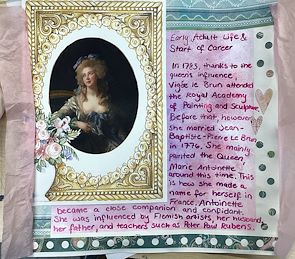 Early Adult Life &
Start of Career
In 1783, thanks to the
queens influence,
Vigée le Brun attends
the Royal Academy
of Painting and Sculpture.
Before that, however,
She married Jean-
Baptiste-Pierre Le Brun
in 1776. She mainly
painted the Queen,
Marie Antoinette
around this time. This
is how she made a
name for herself in
France. Antoinette
became a close companion and confidant.
She was influenced by Flemish artists, her husband,
her father, and teachers such as Peter Paul Rubens.